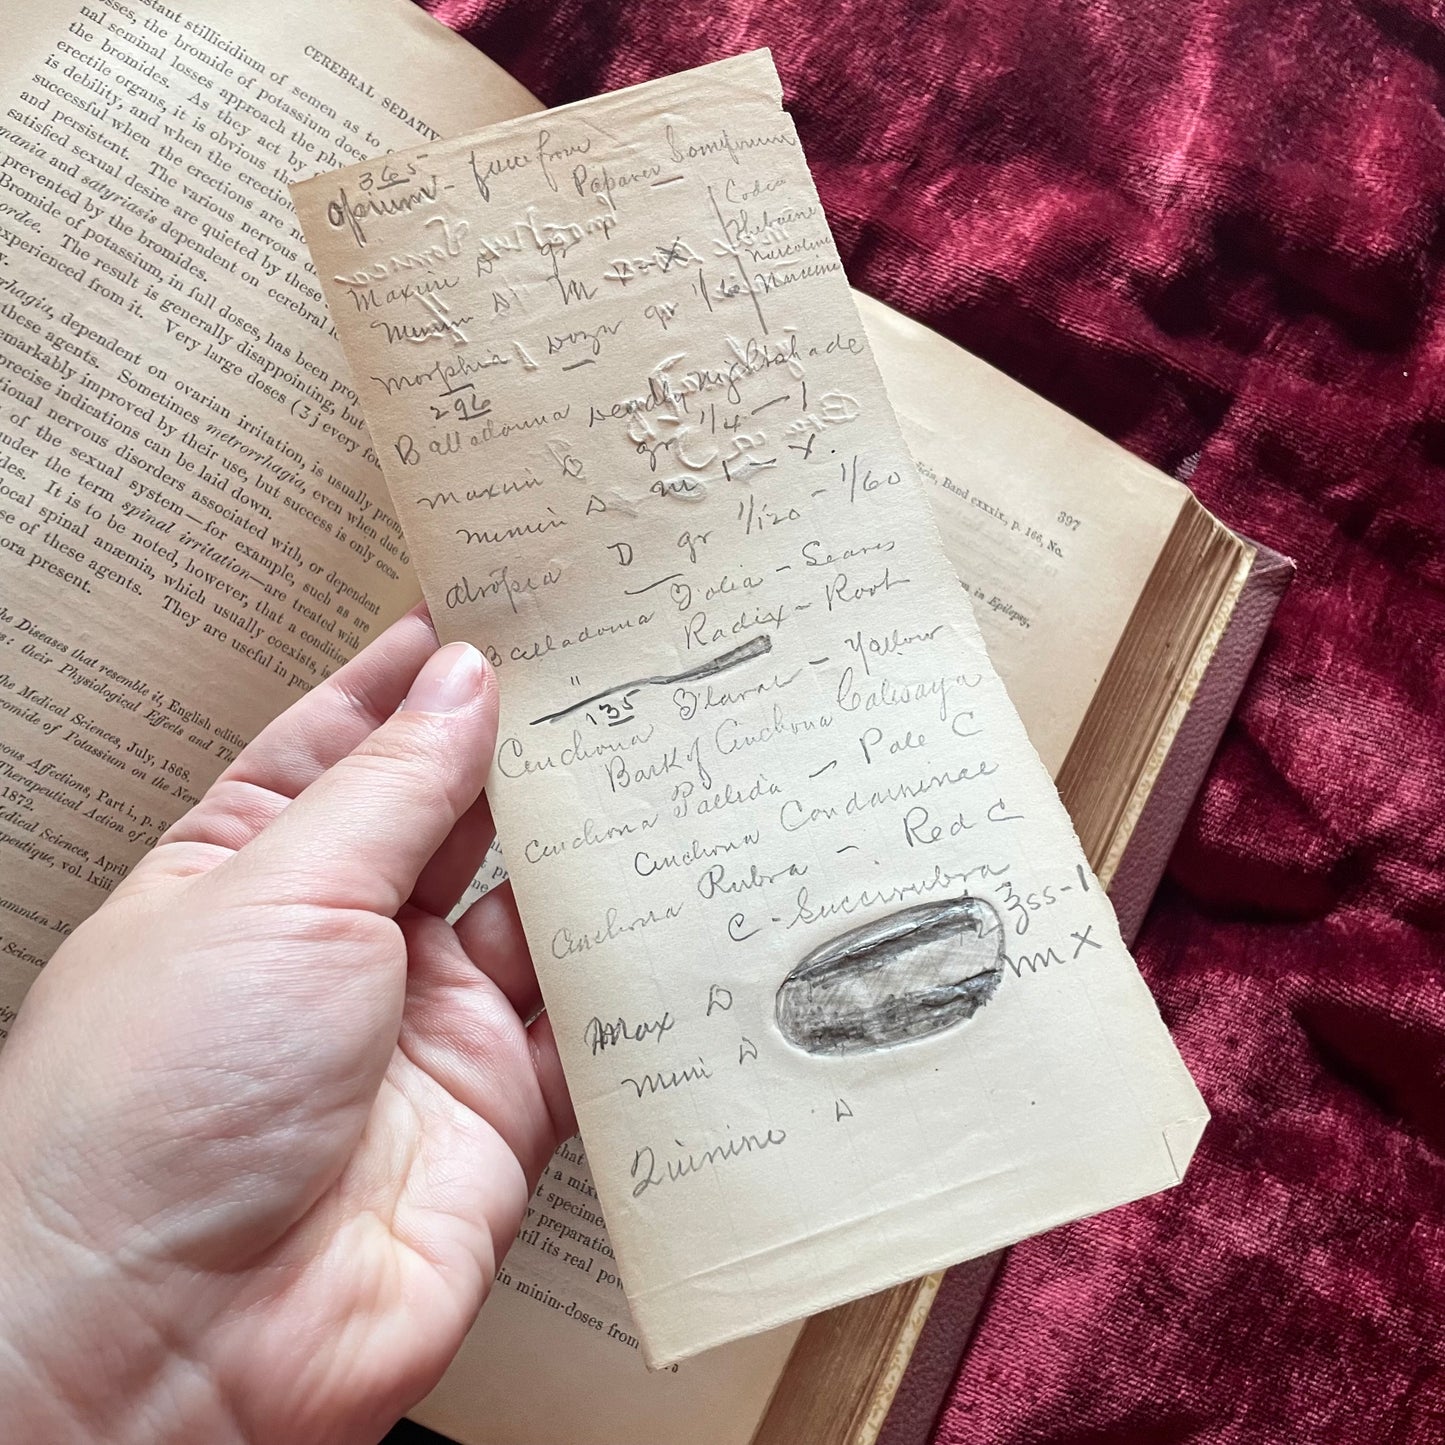 CEREBRAL SEDATIV
stant stillicidium of
sses, the bromide of semen as to
nal seminal losses of potassium does
the bromides. As they approach the phy
erectile organs, it is obvious tha
is debility, and when the erection
successful when the erections are no
and persistent. The various nervous d
satisfied sexual desire are quieted by these
mania and satyriasis dependent on cerebral
prevented by the bromides.
Bromide of potassium, in full doses, has been prop
ordee. The result is generally disappointing, but
experienced from it. Very large doses (ʒj every fou
rrhagia, dependent on ovarian irritation, is usually promp
these agents. Sometimes metrorrhagia, even when due to
emarkably improved by their use, but success is only occa-
precise indications can be laid down.
tional nervous disorders associated with, or dependent
of the sexual system—for example, such as are
under the term spinal irritation—are treated with
des. It is to be noted, however, that a condition
local spinal anæmia, which usually coexists, is
se of these agents. They are useful in pro
ora present.
the Diseases that resemble it, English edition
s: their Physiological Effects and The
the Medical Sciences, July, 1868.
romide of Potassium on the Nerv
vous Affections, Part i., p. 3
Therapeutical Action of th
1872.
edical Sciences, April
peutique, vol. lxiii.
ammten Me
l Science
397
icin, Band cxxxix, p. 166, No.
s in Epilepsy,
365
Opium - juice from
Papaver Somiferum
Codea
Thebaine
Narcotine
Narceine
Maxim D gr
Minim D M X
Morphia D gr 1/16
296
Balladonna Deadly Nightshade
Maxim D gr 1/4 - 1
Minim D m 1 - X.
Atropia D gr 1/120 - 1/60
Balladonna Folia - Leaves
" Radix - Root
135
Cinchona Flavae - Yellow
Bark of Cinchona Calisaya
Cinchona Pallida - Pale C
Cinchona Condaminae
Cinchona Rubra - Red C
C - Succirubra
Max D ʒss-1
Mini D m X
Quinine D
that
a mix
t specimen
y preparation
til its real pow
in minim-doses from